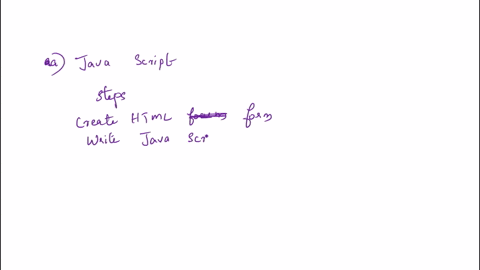 a) Java Script
Steps
Create HTML form
Write Java Scr